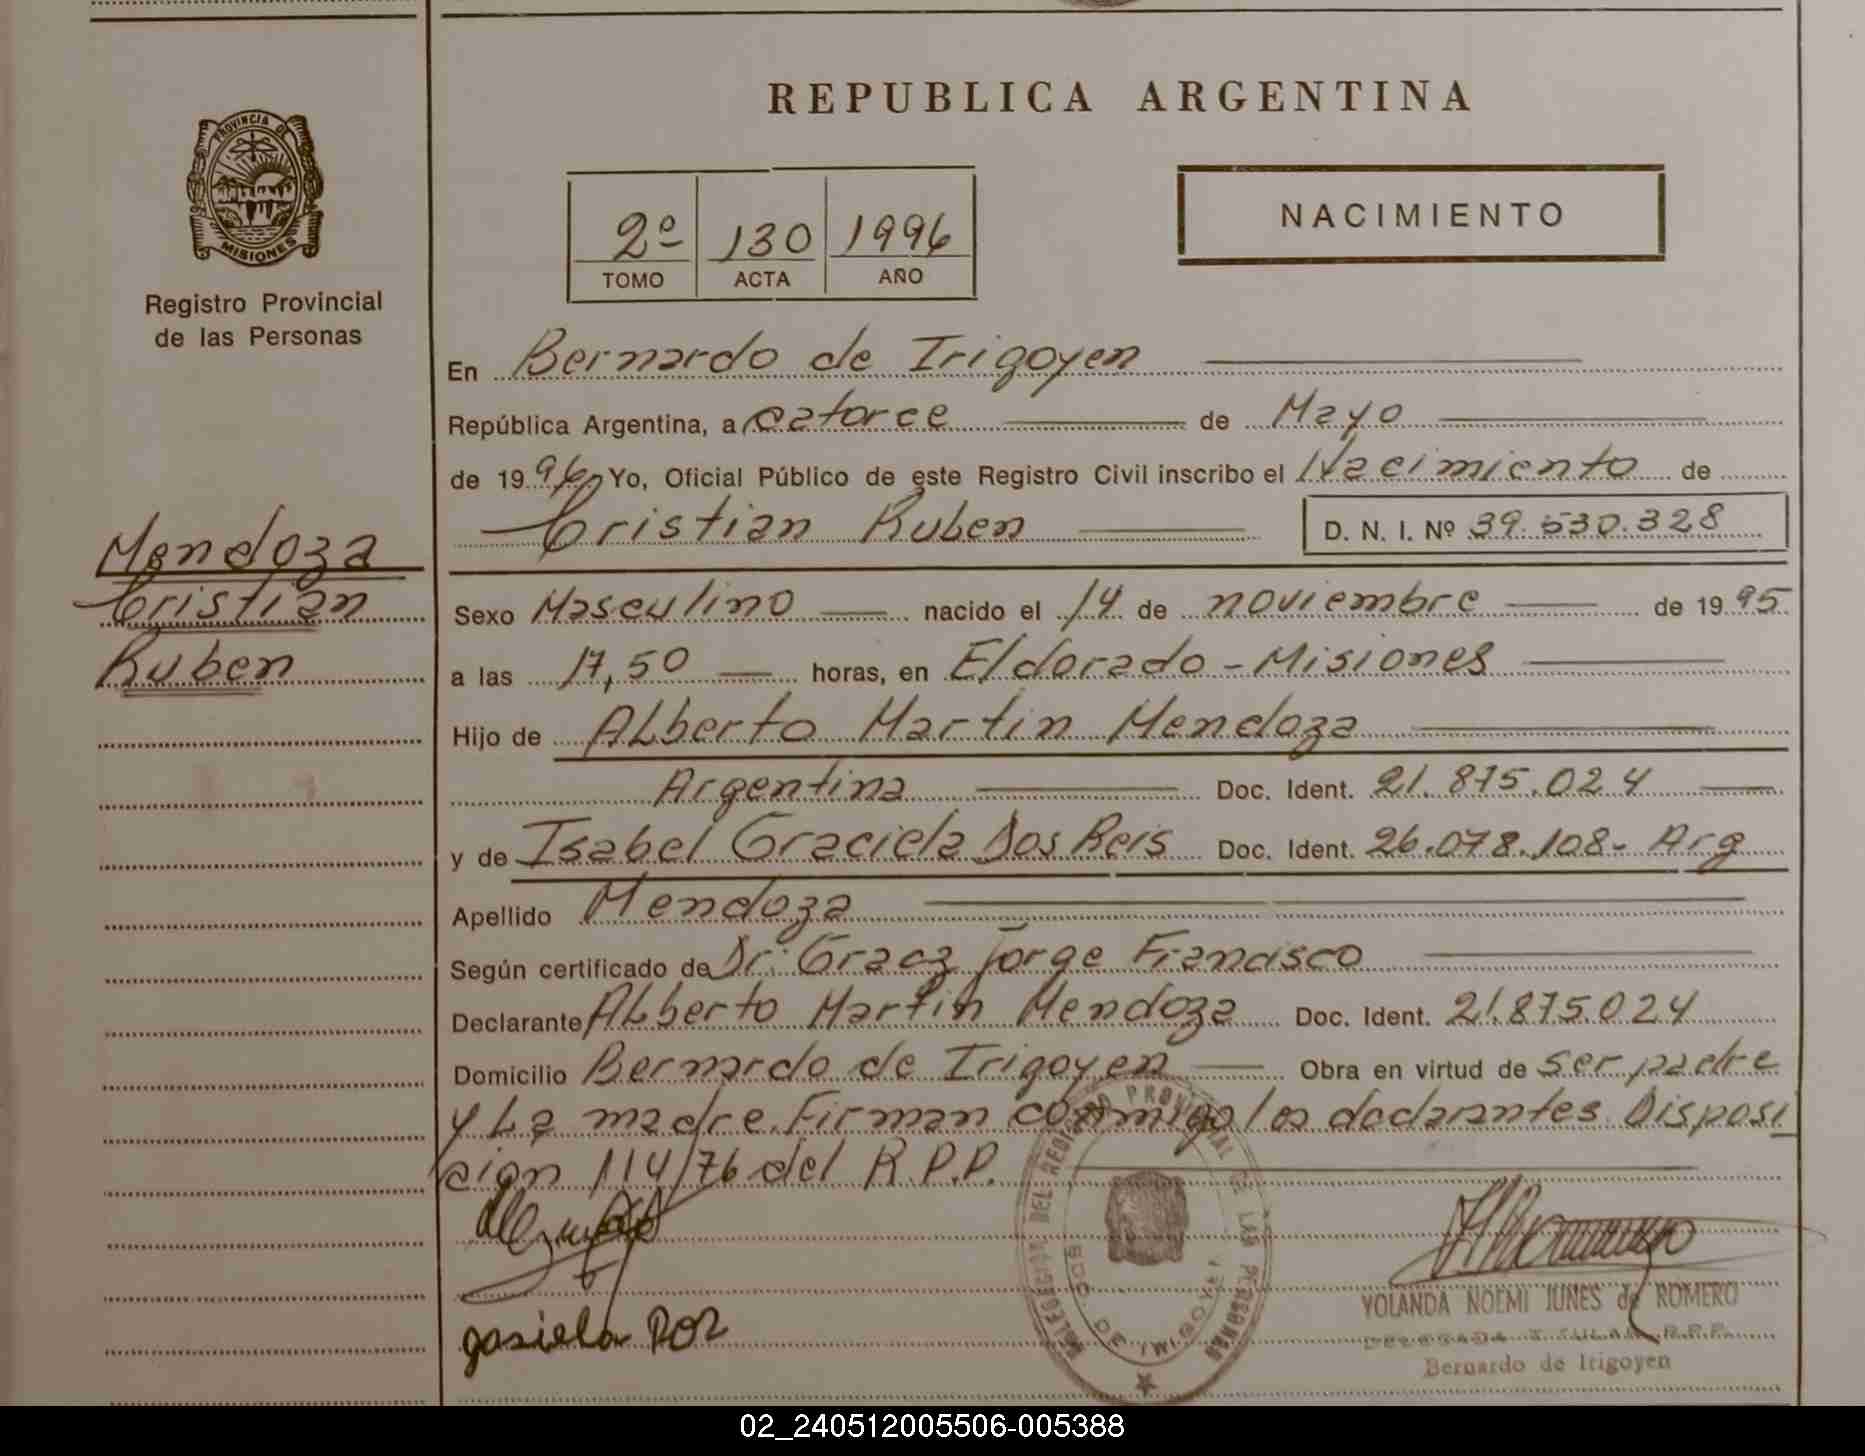 REPUBLICA ARGENTINA
PROVINCIA DE
MISIONES
Registro Provincial
de las Personas
2º 130 1996
TOMO ACTA AÑO
NACIMIENTO
En Bernardo de Irigoyen
República Argentina, a catorce de Mayo
de 1996 Yo, Oficial Público de este Registro Civil inscribo el Nacimiento de
Cristian Ruben D. N. I. Nº 39.530.328
Mendoza
Cristian
Ruben
Sexo Masculino nacido el 14 de noviembre de 1995
a las 17,50 horas, en Eldorado - Misiones
Hijo de Alberto Martin Mendoza
Argentina Doc. Ident. 21.875.024
y de Isabel Graciela Dos Reis Doc. Ident. 26.078.108- Arg
Apellido Mendoza
Según certificado de Dr. Jorge Francisco
Declarante Alberto Martin Mendoza Doc. Ident. 21.875.024
Domicilio Bernardo de Irigoyen Obra en virtud de ser padre
y La madre. Firman conmigo los declarantes. Disposi
cion 114/76 del R.P.P.
DEL REGISTRO PROVINCIAL DE LAS PERSONAS
YOLANDA NOEMI JUNES de ROMERO
DELEGADA TITULAR R.P.P.
Bernardo de Irigoyen
02_240512005506-005388